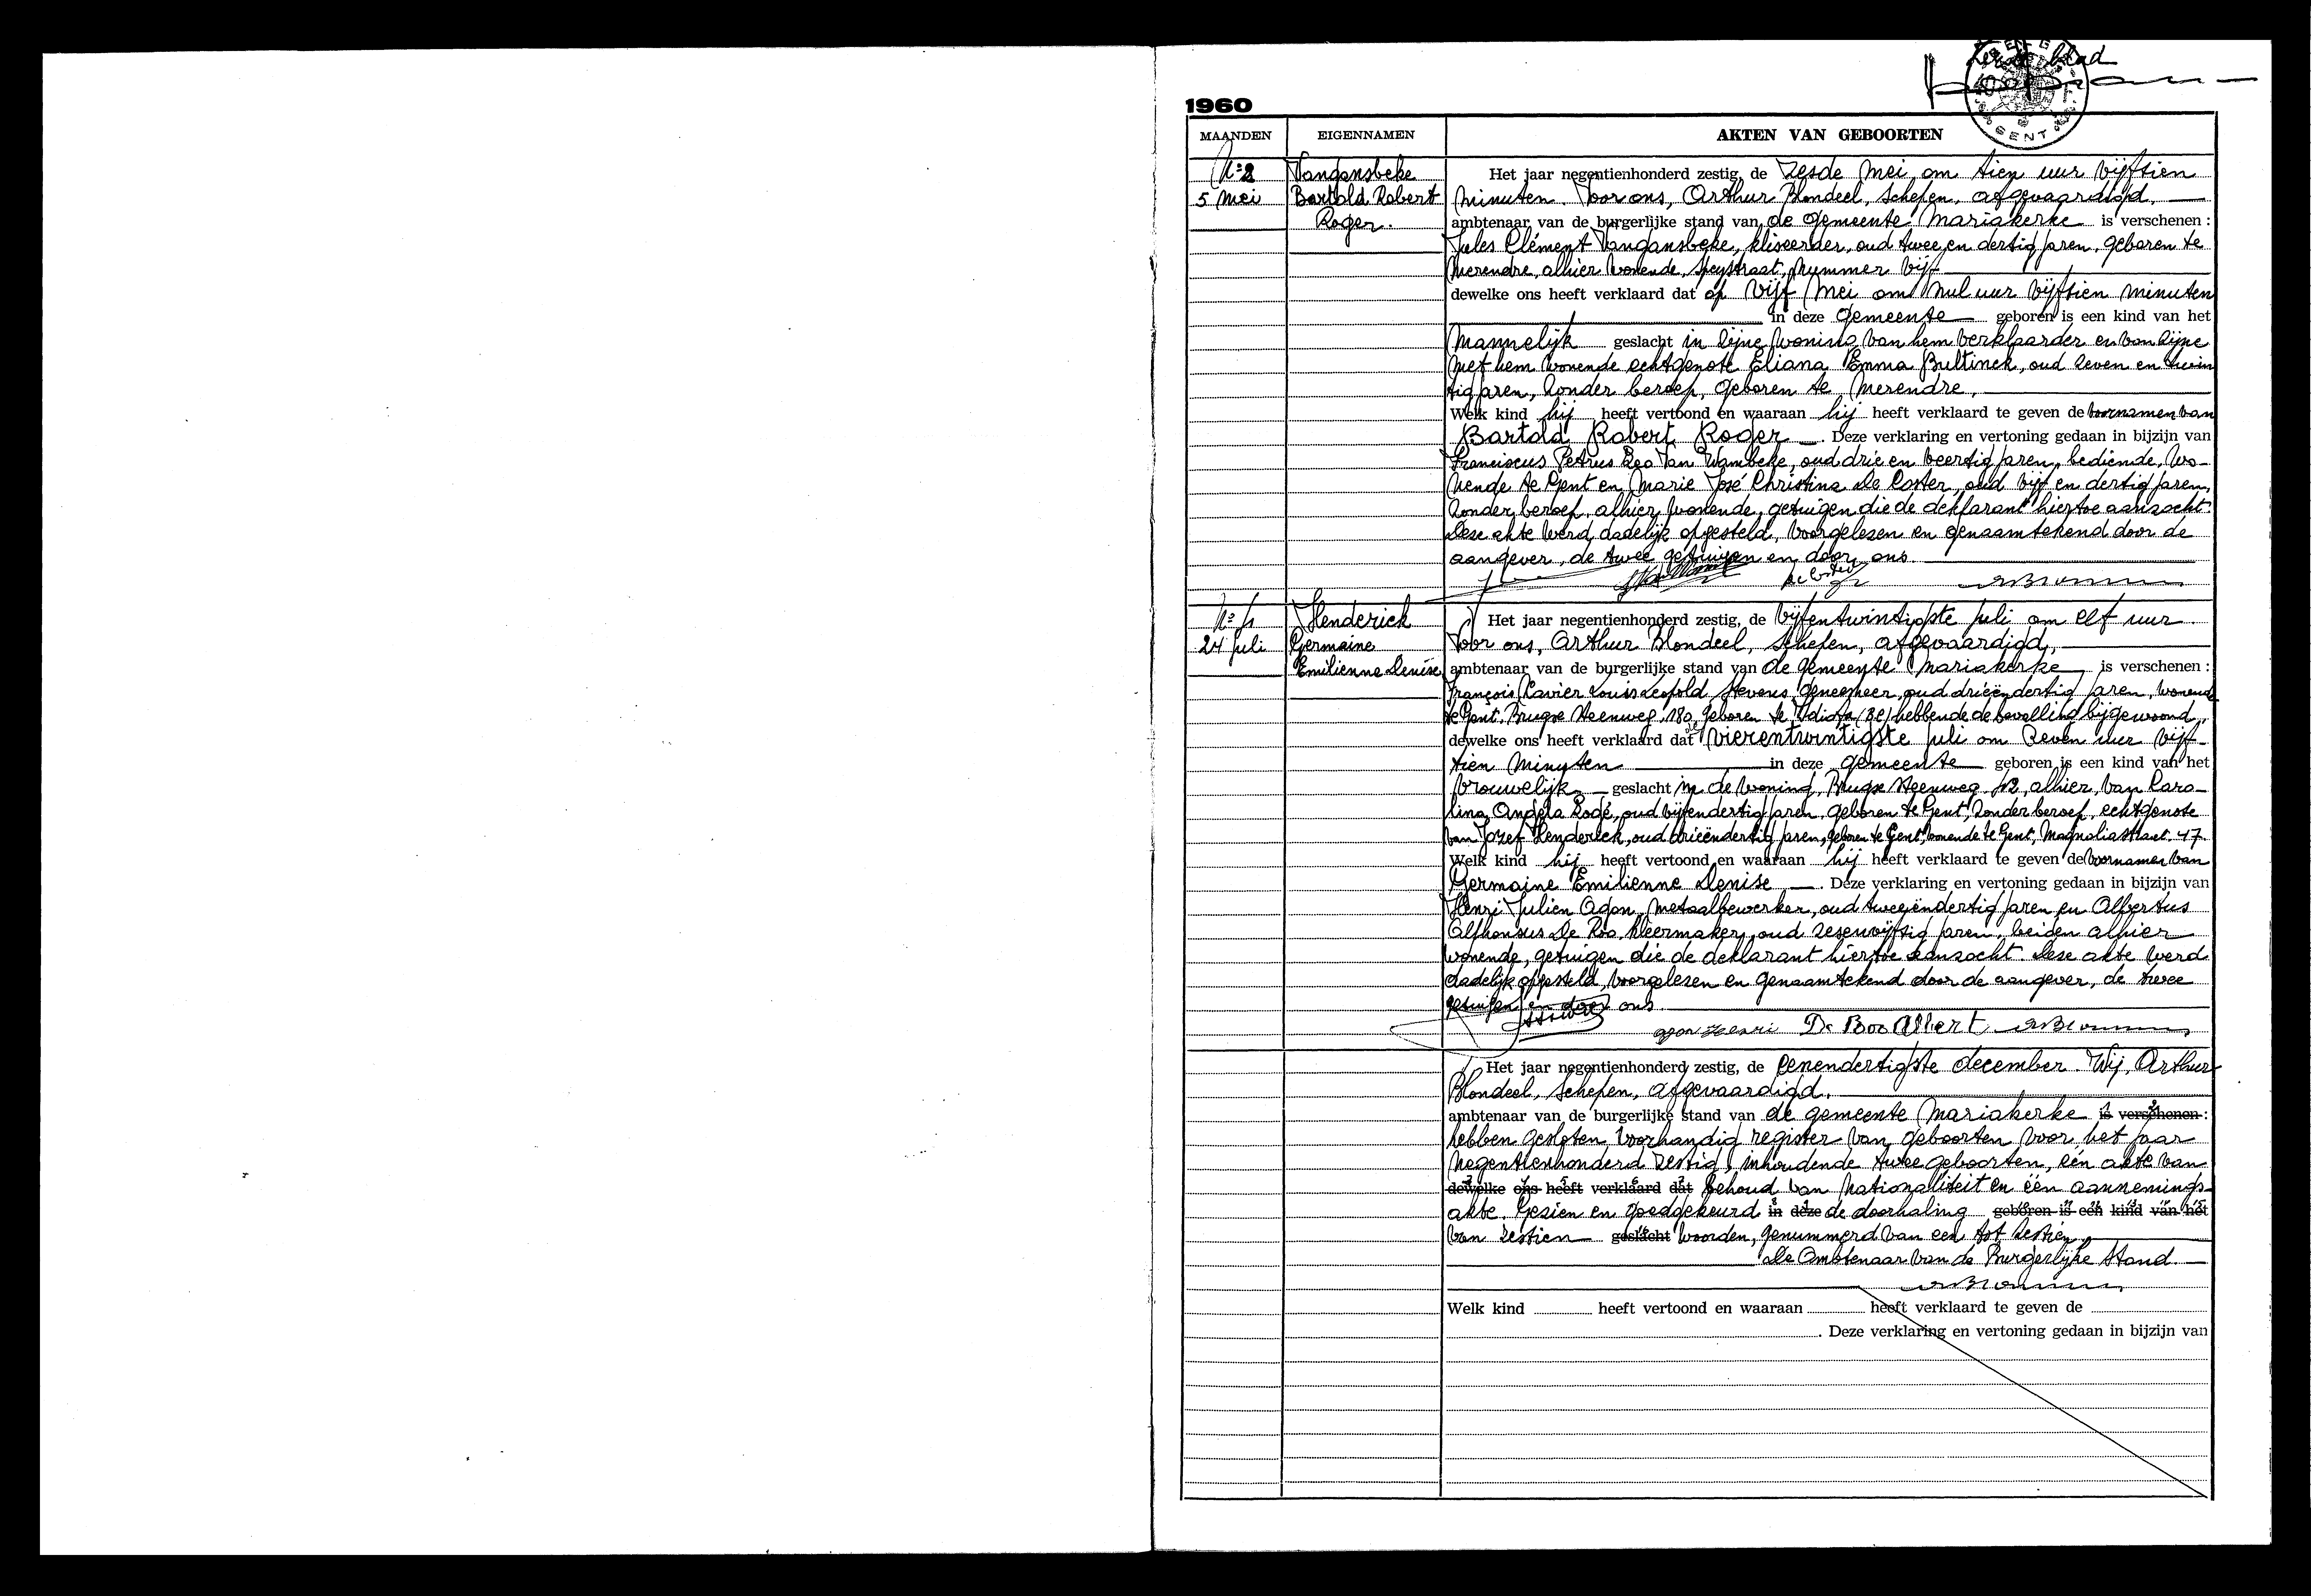 blad
GENT
1960
MAANDEN EIGENNAMEN AKTEN VAN GEBOORTEN
Nº 2
5 Mei
Vangansbeke
Bartold Robert
Roger.
Het jaar negentienhonderd zestig, de zesde mei om tien uur vijftien
minuten. Voor ons, Arthur Blondeel, Schepen, afgevaardigd,
ambtenaar van de burgerlijke stand van de gemeente Mariakerke is verschenen :
Jules Clément Vangansbeke, kliseerder, oud twee en dertig jaren, geboren te
Merendre, alhier wonende, Speystraat, nummer vijf
dewelke ons heeft verklaard dat op vijf Mei om nul uur vijftien minuten
in deze gemeente geboren is een kind van het
Mannelijk geslacht in zijne woning van hem verklaarder en van zijne
met hem wonende echtgenote Eliana Emma Bultinck, oud zeven en twin
tig jaren, zonder beroep, geboren te Merendre,
Welk kind hij heeft vertoond en waaraan hij heeft verklaard te geven de voornamen van
Bartold Robert Roger . Deze verklaring en vertoning gedaan in bijzijn van
Franciscus Petrus Leo Van Wambeke, oud drie en veertig jaren, bediende, wo-
nende te Gent en Marie José Christina De Coster, oud vijf en dertig jaren,
zonder beroep, alhier wonende, getuigen die de deklarant hiertoe aanzocht.
Deze akte werd dadelijk opgesteld, voorgelezen en genaamtekend door de
aangever, de twee getuigen en door ons.
De Coster
Nº 4
24 juli
Henderick
Germaine
Emilienne Denise
Het jaar negentienhonderd zestig, de vijfentwintigste juli om elf uur.
Voor ons, Arthur Blondeel, Schepen, afgevaardigd,
ambtenaar van de burgerlijke stand van de gemeente Mariakerke is verschenen :
François Xavier Louis Leopold Stevens, geneesheer, oud drieëndertig jaren, wonende
te Gent, Brugse Steenweg, 180, geboren te hebbende de bevalling bijgewoond,
dewelke ons heeft verklaard dat vierentwintigste juli om zeven uur vijf-
tien minuten in deze gemeente geboren is een kind van het
Vrouwelijk geslacht in de woning, Brugse Steenweg alhier, van Karo-
lina Angela Rogé, oud vijfendertig jaren, geboren te Gent, zonder beroep, echtgenote
van Jozef Henderick, oud drieëndertig jaren, geboren te Gent, wonende te Gent, Magnoliastraat 47.
Welk kind hij heeft vertoond en waaraan hij heeft verklaard te geven de voornamen van
Germaine Emilienne Denise . Deze verklaring en vertoning gedaan in bijzijn van
Henri Julien Agon, metaalbewerker, oud tweeëndertig jaren en Albertus
Alphonsus De Boo, kleermaker, oud zesenvijftig jaren, beiden alhier
wonende, getuigen die de deklarant hiertoe aanzocht. Deze akte werd
dadelijk opgesteld, voorgelezen en genaamtekend door de aangever, de twee
getuigen en door ons
agon Henri De Boo Albert
Het jaar negentienhonderd zestig, de eenendertigste december. Wij, Arthur
Blondeel, Schepen, afgevaardigd,
ambtenaar van de burgerlijke stand van de gemeente Mariakerke is verschenen :
hebben gesloten voorhandig register van geboorten voor het jaar
negentienhonderd zestig, inhoudende twee geboorten, één akte van
dewelke ons heeft verklaard dat behoud van nationaliteit en één aannemings-
akte. Gezien en goedgekeurd in deze de doorhaling geboren is een kind van het
van zestien geslacht woorden, genummerd van een tot zestien.
De Ambtenaar van de Burgerlijke Stand.
Welk kind heeft vertoond en waaraan heeft verklaard te geven de
. Deze verklaring en vertoning gedaan in bijzijn van